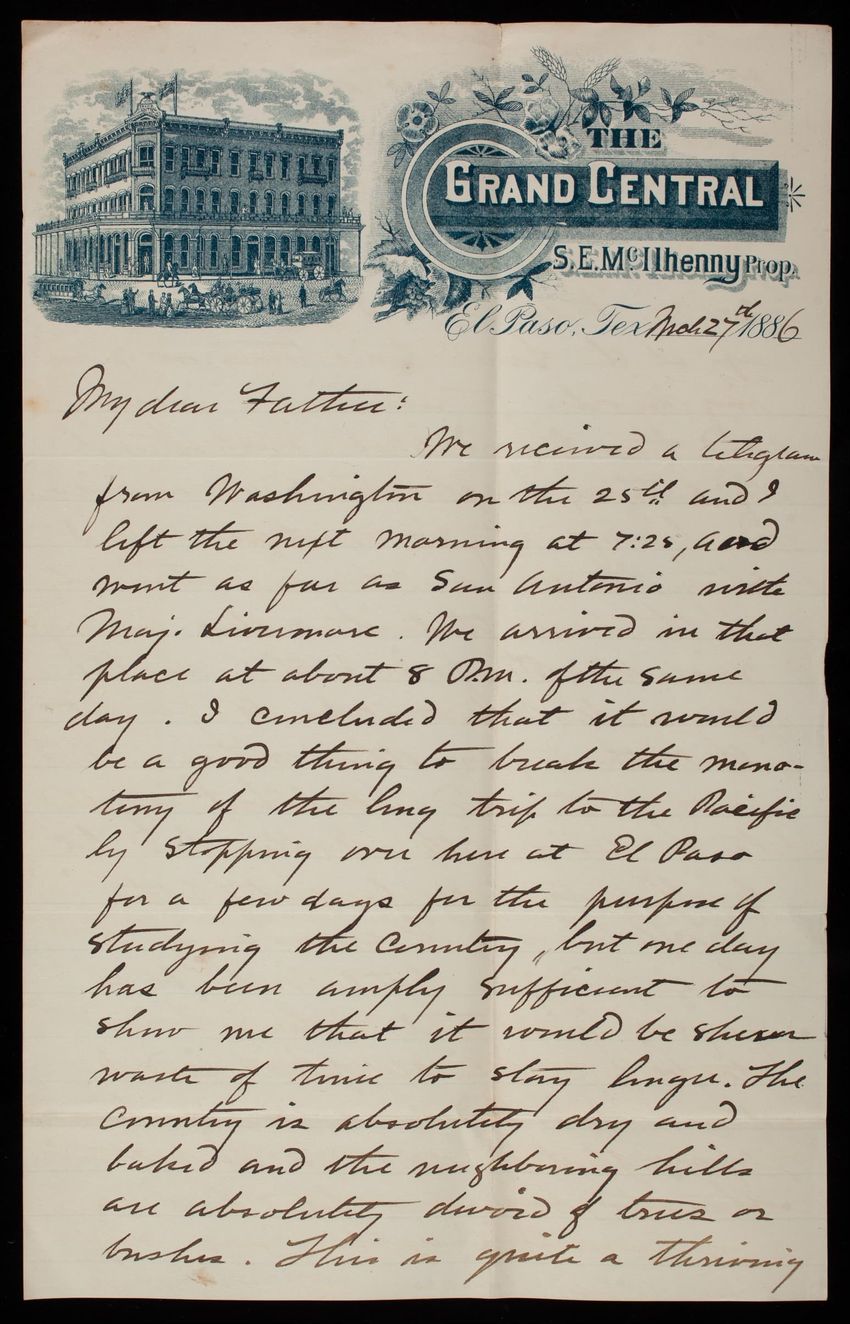 THE
GRAND CENTRAL
S. E. McIlhenny Prop.
El Paso, Tex Mch 27th 1886
My dear Father:
We received a telegram
from Washington on the 25th and I
left the next morning at 7:25, and
went as far as San Antonio with
Maj. Livermore. We arrived in that
place at about 8 P.m. of the same
day. I concluded that it would
be a good thing to break the mono-
tony of the long trip to the Pacific
by stopping over here at El Paso
for a few days for the purpose of
studying the country, but one day
has been amply sufficient to
show me that it would be sheer
waste of time to stay longer. The
country is absolutely dry and
baked and the neighboring hills
are absolutely devoid of trees or
bushes. This is quite a thriving